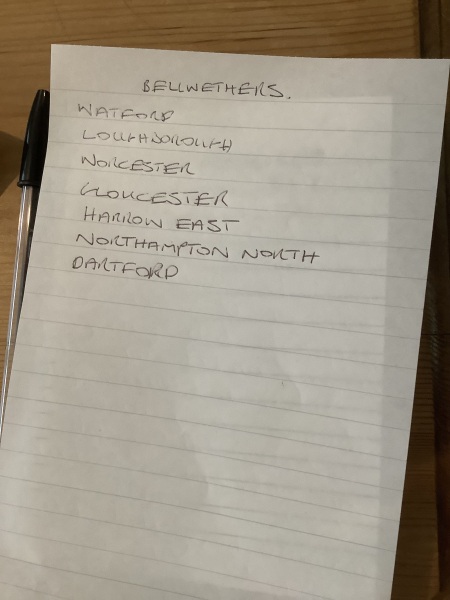 BELLWETHERS.
WATFORD
LOUGHBOROUGH
WORCESTER
GLOUCESTER
HARROW EAST
NORTHAMPTON NORTH
DARTFORD